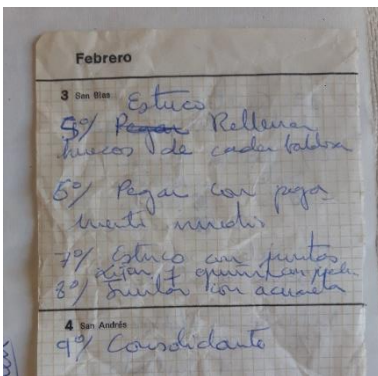 Febrero
3 San Blas
Estuco
5º/ Pegar Rellenar
huecos de cada baldosa
6º/ Pegar con pega
mento
7º/ Estuco con juntas
8º/ con acuarela
4 San Andrés
9º/ Consolidante